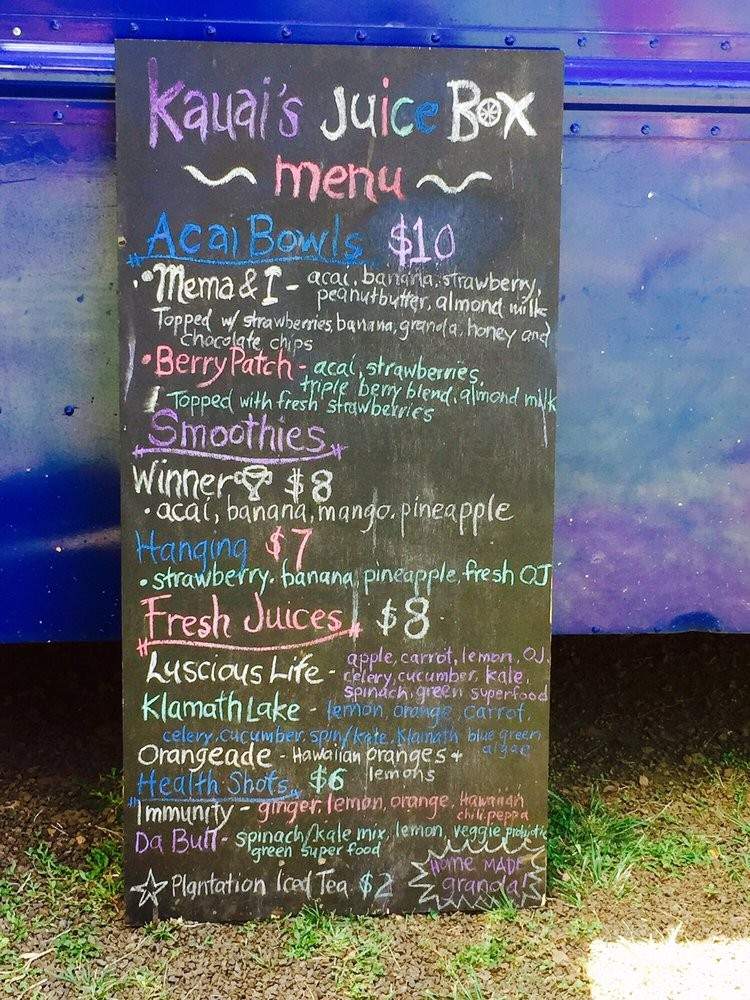 Kauai's Juice Box
menu
Acai Bowls $10
• Mema & I - acai, banana, strawberry,
peanutbutter, almond milk
Topped w/ strawberries, banana, granola, honey and
chocolate chips
• Berry Patch - acai, strawberries,
triple berry blend, almond milk
Topped with fresh strawberries
Smoothies
Winner $8
• acai, banana, mango, pineapple
Hanging $7
• strawberry, banana, pineapple, fresh OJ
Fresh Juices $8
Luscious Life - apple, carrot, lemon, OJ,
celery, cucumber, kale,
spinach, green superfood
Klamath Lake - lemon, orange, carrot,
celery, cucumber, spin/kale, Klamath blue green
algae
Orangeade - Hawaiian oranges +
lemons
Health Shots $6
Immunity - ginger, lemon, orange, Hawaiian
chili peppa
Da Bull - spinach/kale mix, lemon, veggie probiotic
green super food
☆ Plantation Iced Tea $2
HOME MADE
granola!